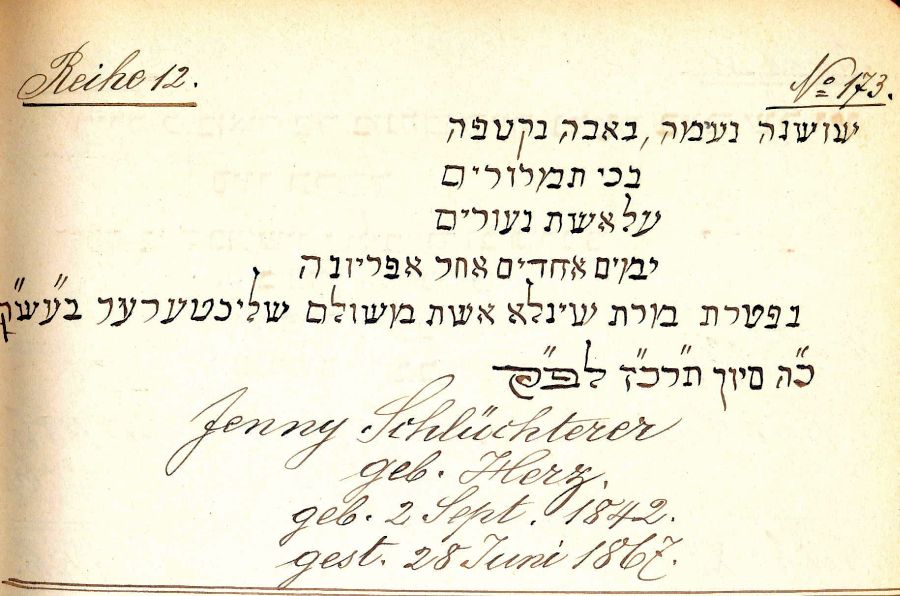 Reihe 12. № 173.
שושנה נעימה, באבה נקטפה
בכי תמרורים
על אשת נעורים
ימים אחדים אחר אפריונה
נפטרת מרת שינלא אשת משולם שליכטערער בע״ש״ק
כ״ה סיון תרכ״ז לפ״ק
Jenny Schlüchterer
geb. Herz.
geb. 2 Sept. 1842.
gest. 28 Juni 1867.